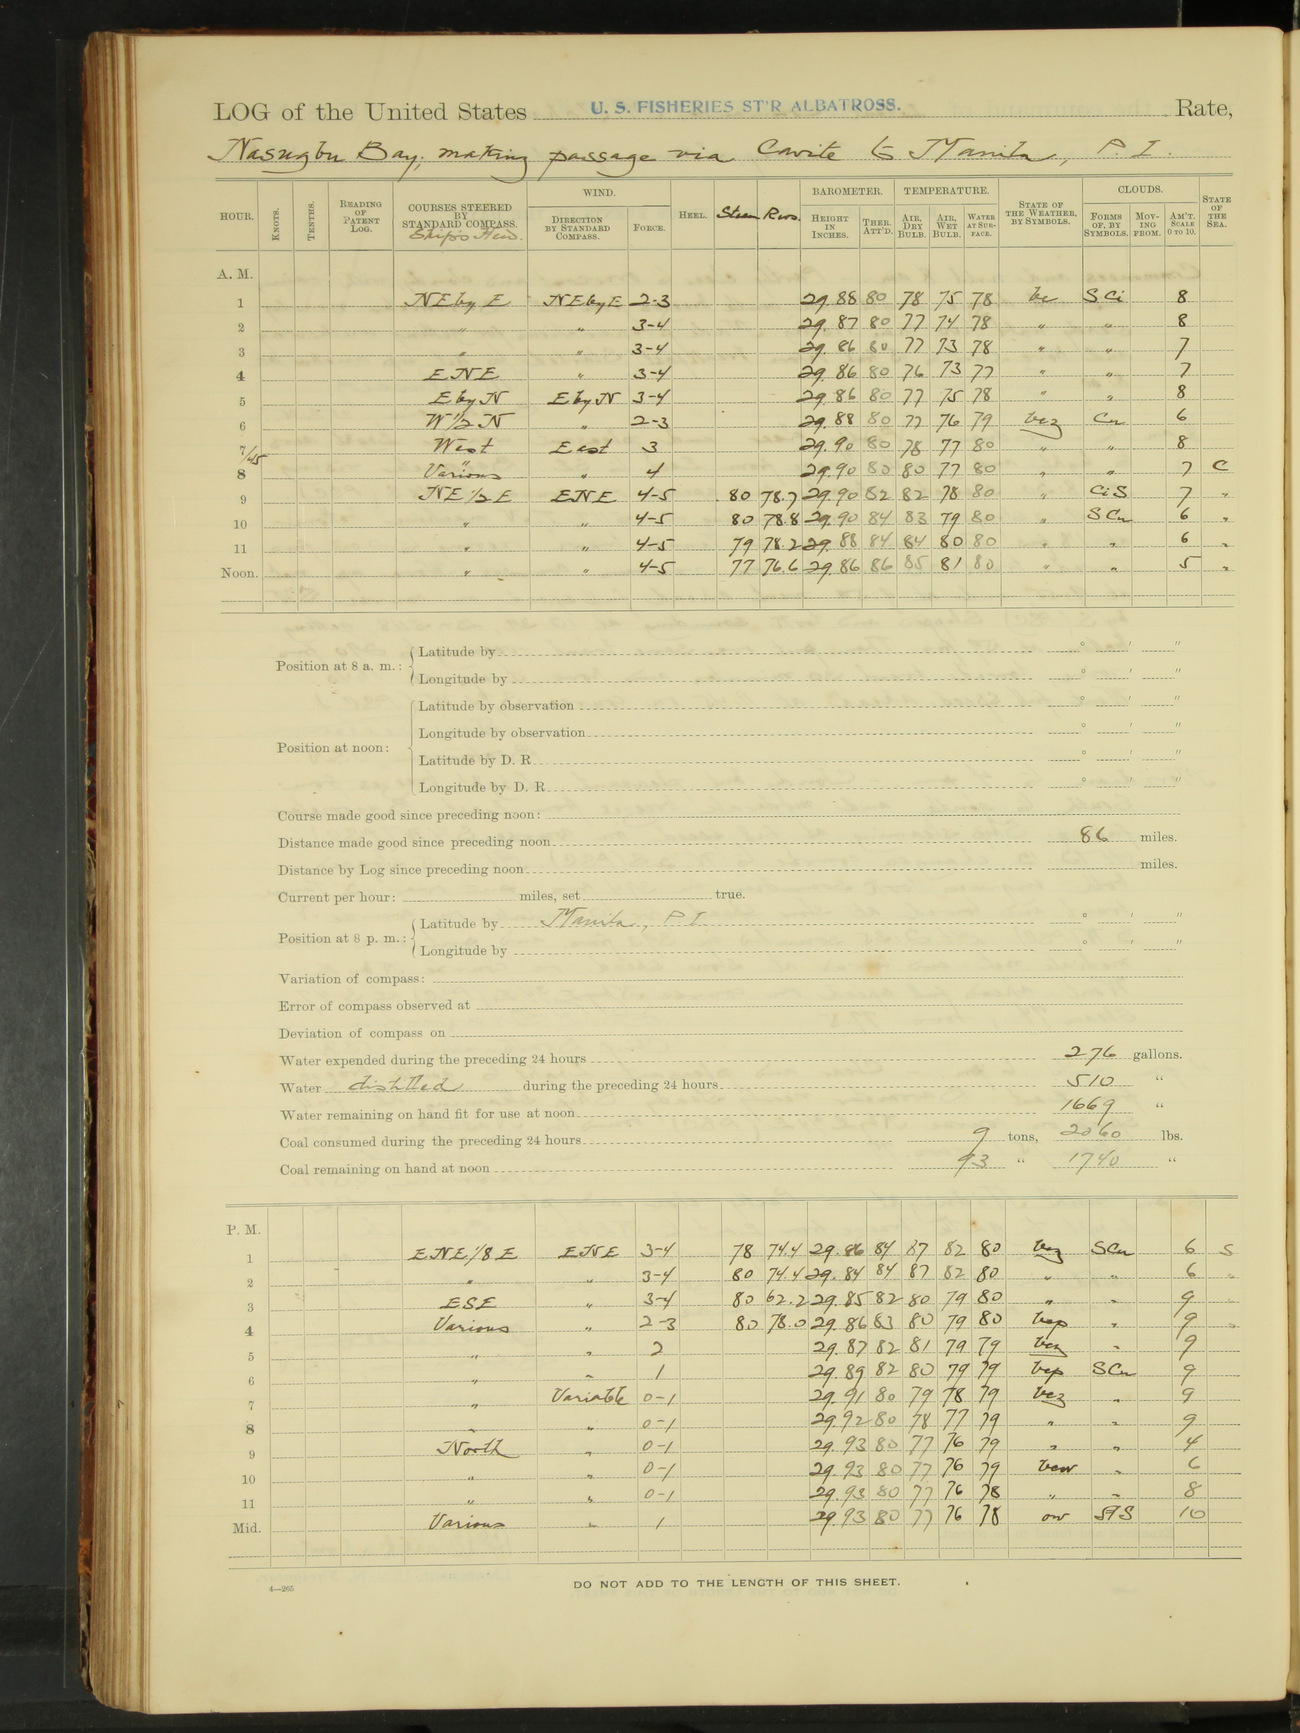 LOG of the United States U. S. FISHERIES ST'R ALBATROSS. Rate,
Nasugbu Bay, making passage via Cavite to Manila, P. I.
HOUR. KNOTS. TENTHS. READING OF PATENT LOG. COURSES STEERED BY STANDARD COMPASS. Ship's Head. WIND. DIRECTION BY STANDARD COMPASS. FORCE. HEEL. Steam Revs. BAROMETER. HEIGHT IN INCHES. THER. ATT'D. TEMPERATURE. AIR, DRY BULB. AIR, WET BULB. WATER AT SURFACE. STATE OF THE WEATHER, BY SYMBOLS. CLOUDS. FORMS OF, BY SYMBOLS. MOVING FROM. AM'T. SCALE 0 TO 10. STATE OF THE SEA.
A. M.
1 NE by E NE by E 2-3 29.88 80 78 75 78 bc S Ci 8
2 " " 3-4 29.87 80 77 74 78 " " 8
3 " " 3-4 29.86 80 77 73 78 " " 7
4 ENE " 3-4 29.86 80 76 73 77 " " 7
5 E by N E by N 3-4 29.86 80 77 75 78 " " 8
6 W 1/2 N " 2-3 29.88 80 77 76 79 bcz Cu 6
7/45 West East 3 29.90 80 78 77 80 " " 8
8 Various " 4 29.90 80 80 77 80 " " 7 C
9 NE 1/2 E ENE 4-5 80 78.7 29.90 82 82 78 80 " Ci S 7 "
10 " " 4-5 80 78.8 29.90 84 83 79 80 " S Cu 6 "
11 " " 4-5 79 78.2 29.88 84 84 80 80 " " 6 "
Noon. " " 4-5 77 76.6 29.86 86 85 81 80 " " 5 "
Position at 8 a. m.: Latitude by ° ' "
Longitude by ° ' "
Position at noon: Latitude by observation ° ' "
Longitude by observation ° ' "
Latitude by D. R ° ' "
Longitude by D. R ° ' "
Course made good since preceding noon:
Distance made good since preceding noon 86 miles.
Distance by Log since preceding noon miles.
Current per hour: miles, set true.
Position at 8 p. m.: Latitude by Manila, P. I. ° ' "
Longitude by ° ' "
Variation of compass:
Error of compass observed at
Deviation of compass on
Water expended during the preceding 24 hours 276 gallons.
Water distilled during the preceding 24 hours 510 "
Water remaining on hand fit for use at noon 1669 "
Coal consumed during the preceding 24 hours 9 tons, 2060 lbs.
Coal remaining on hand at noon 93 " 1740 "
P. M.
1 ENE 1/8 E ENE 3-4 78 74.4 29.86 84 87 82 80 bcz S Cu 6 S
2 " " 3-4 80 74.4 29.84 84 87 82 80 " " 6 "
3 ESE " 3-4 80 62.2 29.85 82 80 79 80 " " 9 "
4 Various " 2-3 80 78.0 29.86 83 80 79 80 bcp " 9 "
5 " " 2 29.87 82 81 79 79 bcz " 9
6 " " 1 29.89 82 80 79 79 bcp S Cu 9
7 " Variable 0-1 29.91 80 79 78 79 bcz " 9
8 " " 0-1 29.92 80 78 77 79 " " 9
9 North " 0-1 29.93 80 77 76 79 " " 4
10 " " 0-1 29.93 80 77 76 79 bcw " 6
11 " " 0-1 29.93 80 77 76 78 " " 8
Mid. Various " 1 29.93 80 77 76 78 ow 10
4—265
DO NOT ADD TO THE LENGTH OF THIS SHEET.